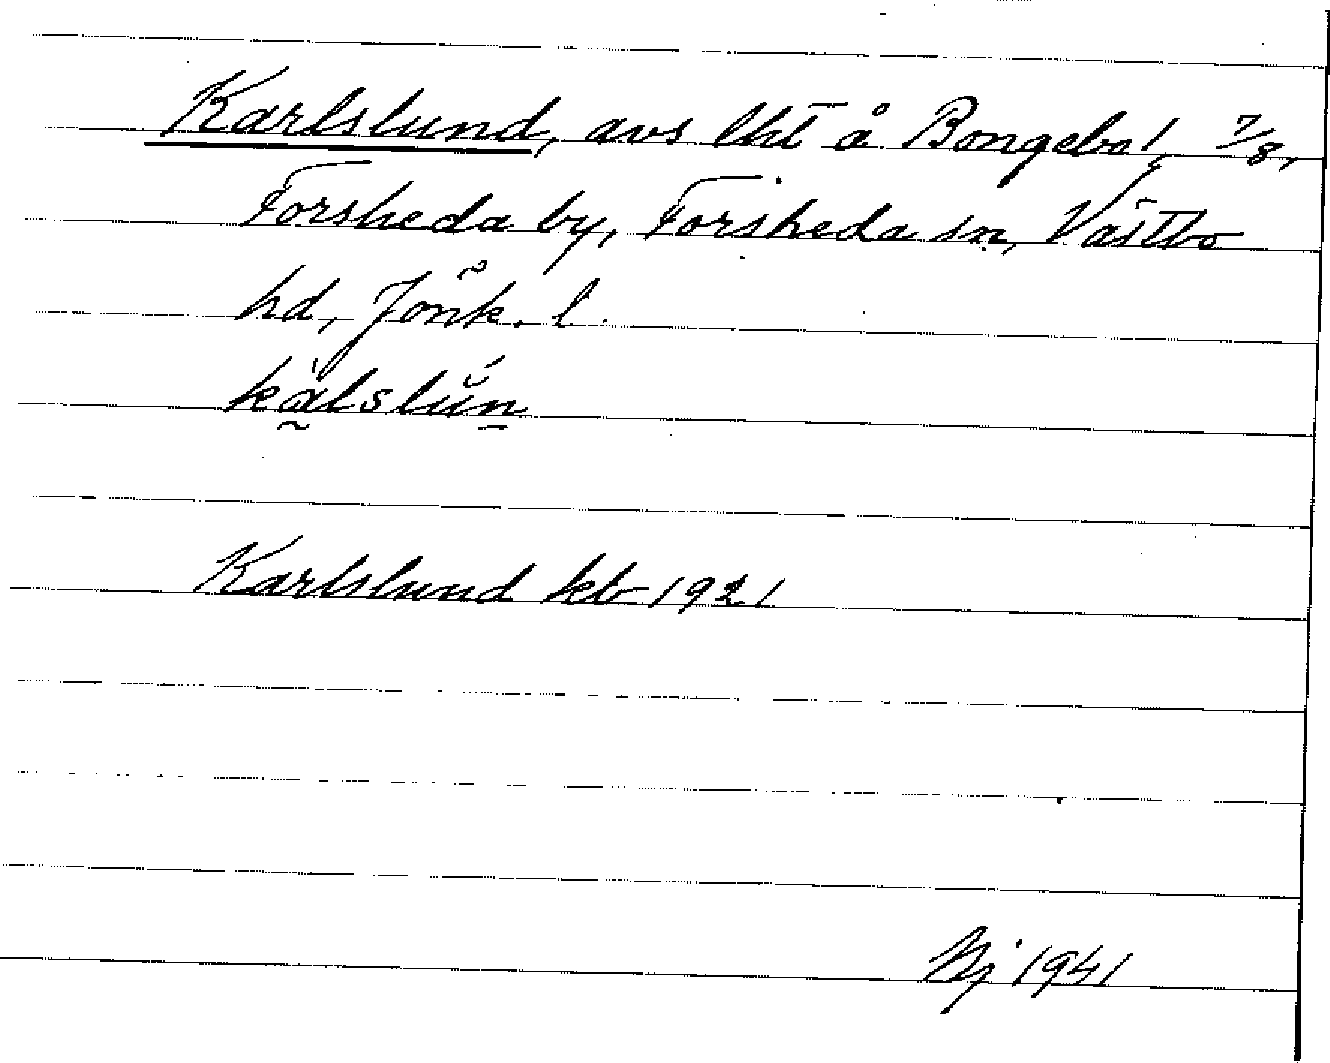 Karlslund, avs lht å Bongebol 7/8,
Forsheda by, Forsheda sn, Västbo
hd, Jönk. l.
kàlslún
Karlslund kb 1921
1941